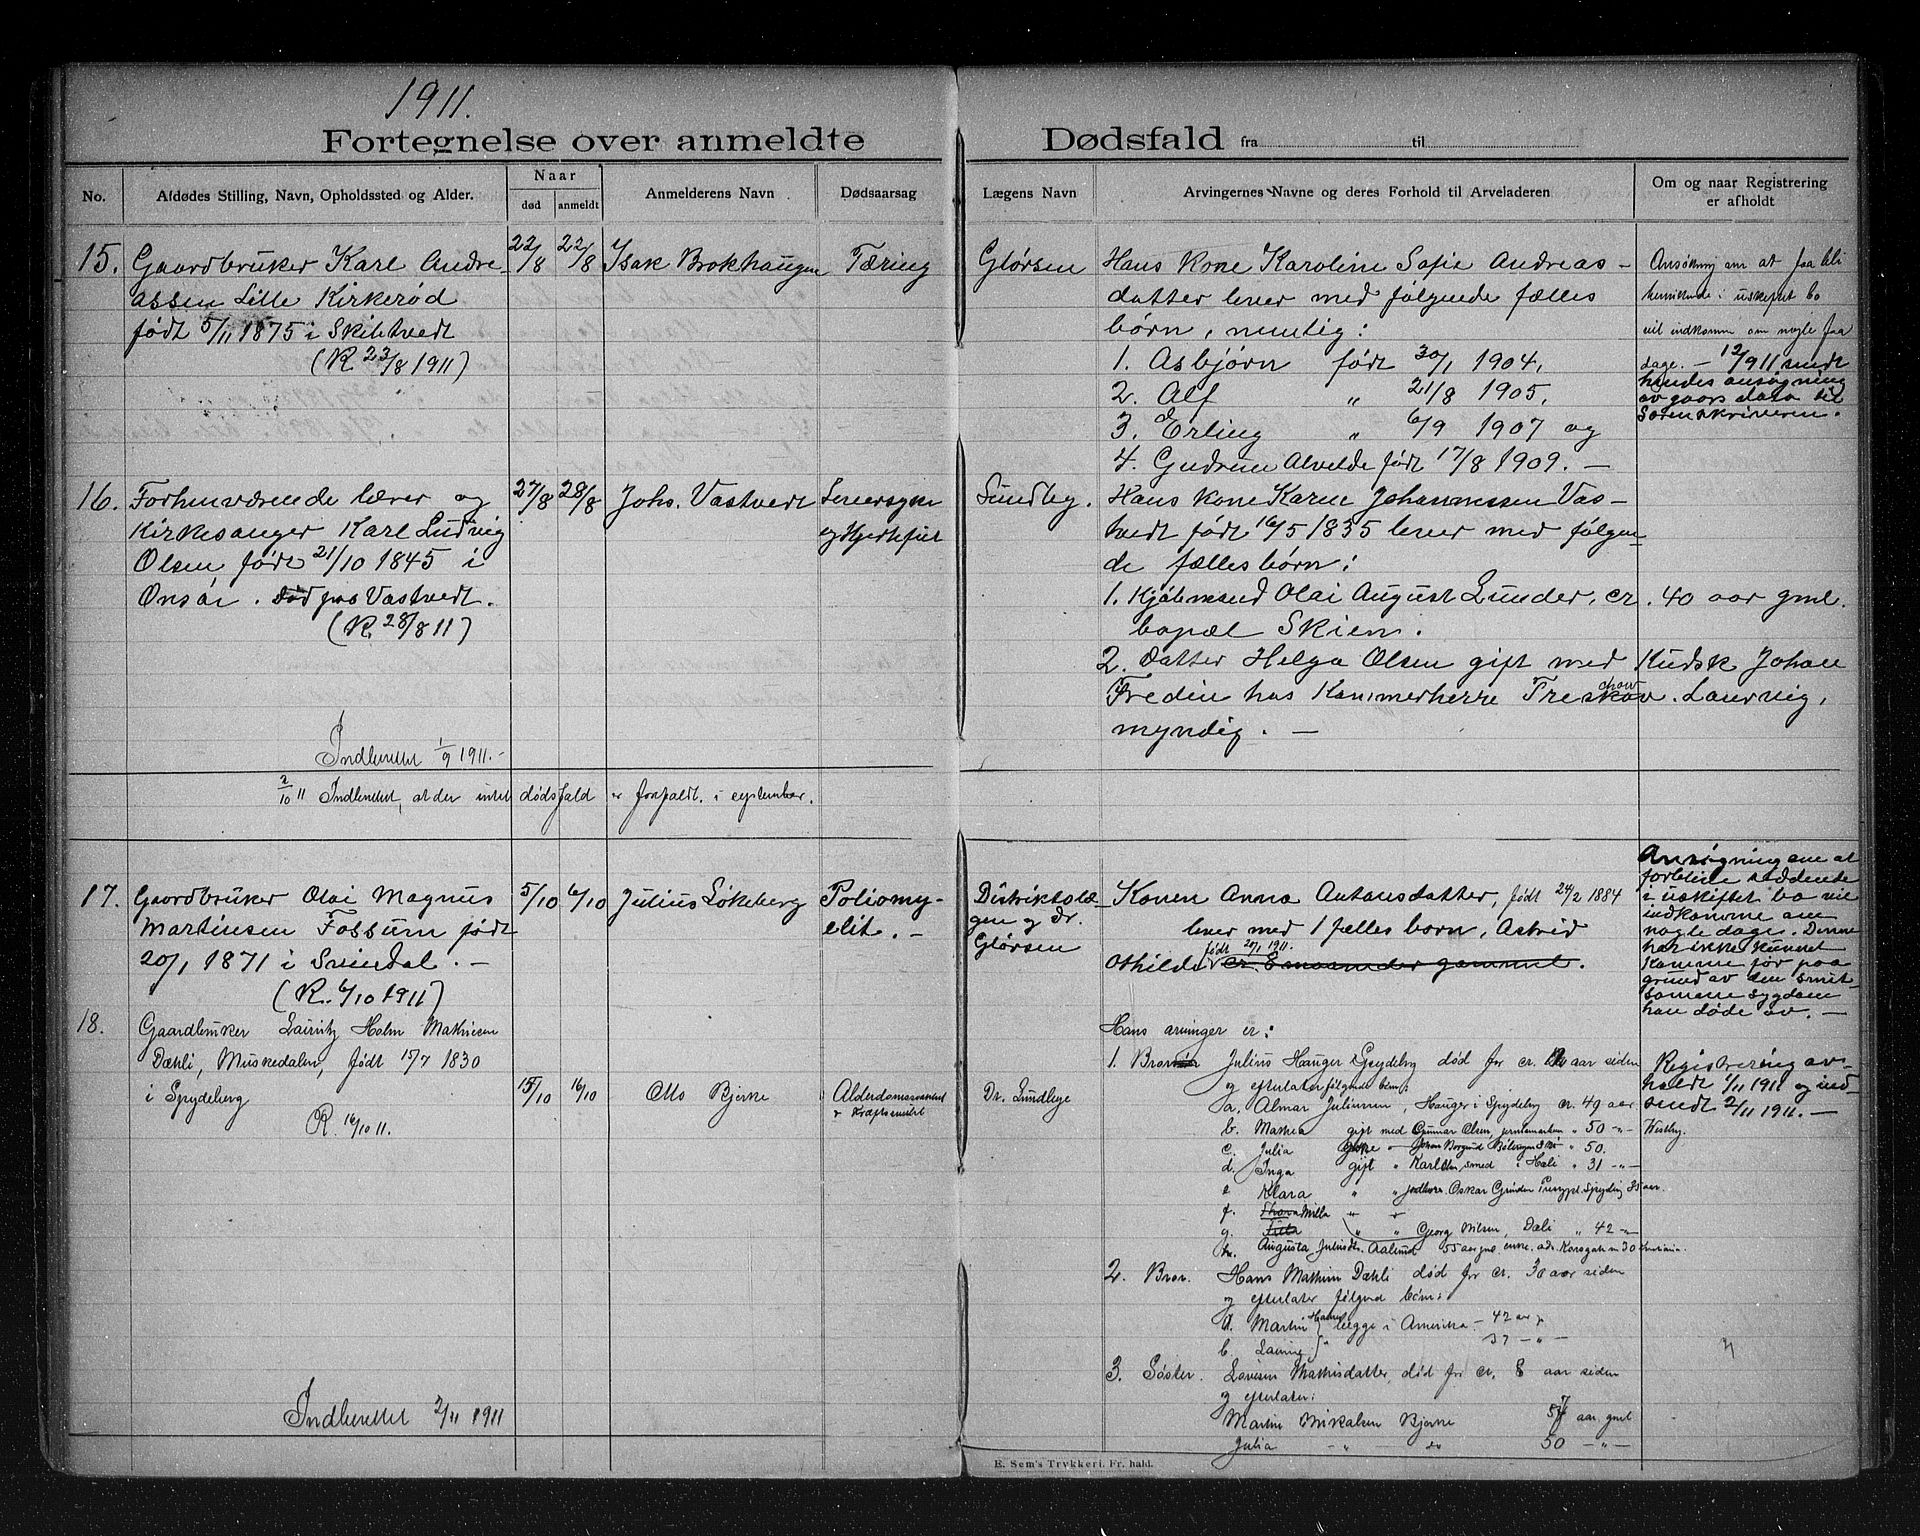 1911.
Fortegnelse over anmeldte Dødsfald fra til
No.
Afdødes Stilling, Navn, Opholdssted og Alder.
Naar
død
anmeldt
Anmelderens Navn
Dødsaarsag
Lægens Navn
Arvingernes Navne og deres Forhold til Arveladeren
Om og naar Registrering
er afholdt
15.
Gaardbruker Karl Andre-
assen Lille Kirkerød
født 5/11 1875 i Skibtvedt
(R 23/8 1911)
22/8
22/8
Isak Brokhaugen
Tæring
Glørsen
Hans kone Karoline Sofie Andreas-
datter lever med følgende fælles
børn, nemlig:
1. Asbjørn født 30/1 1904,
2. Alf " 21/8 1905,
3. Erling " 6/9 1907 og
4. Gudrun Alvelde født 17/8 1909. —
Ansøkning om at faa bli
i uskiftet bo
vil indkomme om nogle faa
dage. — 12/9 11 sendt
hendes ansøgning
av gaars dato til
Sorenskriveren.
16.
Forhenværende lærer og
Kirkesanger Karl Ludvig
Olsen født 21/10 1845 i
Onsøi. Død paa Vastvedt.
(R. 28/8 11)
27/8
28/8
Johs. Vastvedt
og Hjertefeil
Sundby.
Hans kone Karen Johannessen Vas-
tvedt født 16/5 1835 lever med følgen-
de fællesbørn:
1. Kjøbmand Olai August Lunder, cr. 40 aar gml.
bopæl Skien.
2. Datter Helga Olsen gift med Kudsk Johan
Fredin hos Kammerherre Treskow chow. Laurvig,
myndig. —
Indberettet 1/9 1911. —
2/10 11 Indberettet, at der intet dødsfald er forfaldt i september.
17.
Gaardbruker Olai Magnus
Martinsen Fossum født
20/1 1871 i Svindal. —
(R. 6/10 1911)
5/10
6/10
Julius Løkeberg
Poliomy-
elit. —
Distriktslæ-
gen og dr.
Glørsen
Konen Anna Antonsdatter, født 24/2 1884
lever med 1 fælles barn, Astrid
født 20/1 1911.
Othilde cr. 8 maaneder gammel.
Ansøgning om at
forblive siddende
i uskiftet bo vil
indkomme om
nogle dage. Denne
har ikke kunnet
komme før paa
grund av den smit-
somme sygdom
han døde av. —
18.
Gaardbruker Lauritz Holm Mathiesen
Dæhli, Muskedalen, født 15/7 1830
i Spydeberg
R. 16/10 11.
15/10
16/10
Otto Bjerke
Alderdomssvakhet
+ Kræftsvulst
Dr. Lundbye
Hans arvinger er:
1. Bror Julius Hauger Spydeberg død for cr. aar siden
og efterlater følgende børn:
a. Almar Juliussen, Hauger i Spydeberg cr. 49 aar
b. Mathea gift med Gunnar Olsen, " 50 -"- Westby.
c. Julia " 50.
d. Inga gift " Karl smed i Hæli " 31 -"-
e Klara " " Oskar Spydebg 35 aar.
f. Thora Milla " "
g. " " Georg Nilsen, Dæli " 42 -"-
h. Augusta Julisdt. Aalund 55 aar gml. enke. adr. Korsgaten 30 Kristiania.
2. Bror. Hans Mathiesen Dæhli død for cr. 30 aar siden
og efterlater følgend børn:
a. Martin Hansen begge i Amerika — 42 aar
b. 37 -"-
3. Søster. Lovise Mathisdatter, død for cr. 8 aar siden
og efterlater:
Martin Mikalsen Bjerke 57 aar gml
Julia -"- do 50 -"-
Registrering av-
holdt 1/11 1911 og ind-
sendt 2/11 1911. —
Indberettet 2/11 1911
E. Sem's Trykkeri. Fr. hald.